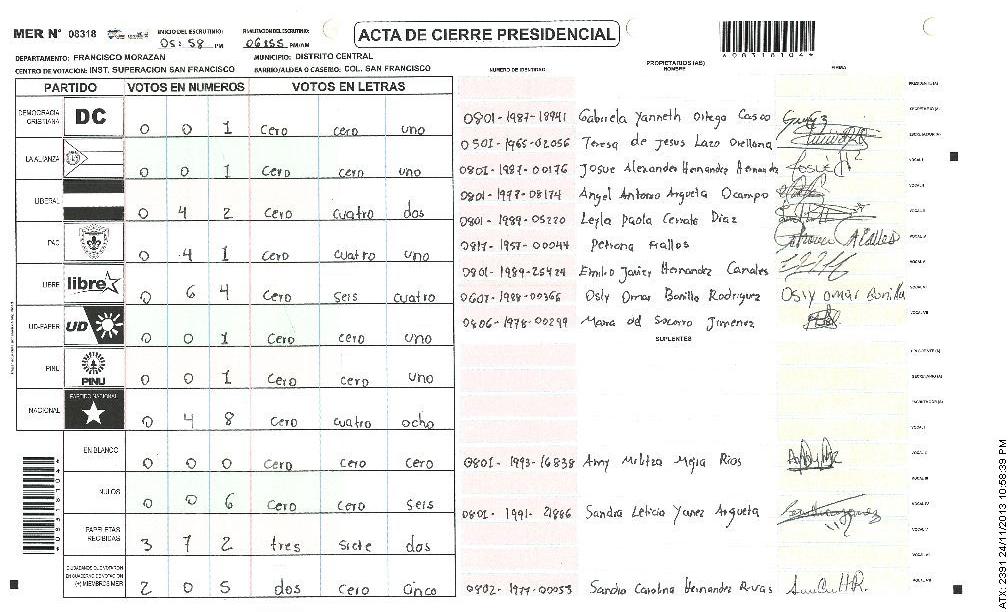 MER N° 08318
INICIO DEL ESCRUTINIO:
05:58 PM
06:55 PM/AM
ACTA DE CIERRE PRESIDENCIAL
*08318104*
DEPARTAMENTO: FRANCISCO MORAZAN
MUNICIPIO: DISTRITO CENTRAL
CENTRO DE VOTACION: INST. SUPERACION SAN FRANCISCO
BARRIO/ALDEA O CASERIO: COL. SAN FRANCISCO
NUMERO DE IDENTIDAD
PROPIETARIOS (AS)
NOMBRE
FIRMA
PARTIDO VOTOS EN NUMEROS VOTOS EN LETRAS
DEMOCRACIA CRISTIANA DC 0 0 1 cero cero uno
LA ALIANZA 0 0 1 cero cero uno
LIBERAL 0 4 2 cero cuatro dos
PAC 0 4 1 cero cuatro uno
LIBRE libre 0 6 4 cero seis cuatro
UD-FAPER UD 0 0 1 cero cero uno
PINU PINU 0 0 1 cero cero uno
NACIONAL PARTIDO NACIONAL 0 4 8 cero cuatro ocho
EN BLANCO 0 0 0 cero cero cero
NULOS 0 0 6 cero cero seis
PAPELETAS RECIBIDAS 3 7 2 tres siete dos
CIUDADANOS QUE VOTARON
EN CUADERNO DE VOTACION
(+) MIEMBROS MER 2 0 5 dos cero cinco
0801-1987-18941 Gabriela Yanneth Ortega Casco
0501-1965-02056 Teresa de Jesus Lazo Orellana
0801-1987-00176 Josue Alexander Hernandez Hernandez Josué H
0801-1977-08174 Angel Antonio Argueta Ocampo
0801-1989-05220 Leyla Paola Cerrato Diaz
0817-1957-00044 Petrona
0801-1989-25424 Emilio Javier Hernandez Canales
0607-1988-00365 Osly Omar Bonilla Rodriguez Osly Omar Bonilla
0806-1978-00299 Maria del Socorro Jimenez
SUPLENTES
0801-1993-16838 Amy Melitza Mejia Rios
0801-1991-21886 Sandra Leticia Yanez Argueta
0802-1977-00053 Sandra Carolina Hernandez Rivas
ATX 2391 24/11/2013 10:58:39 PM